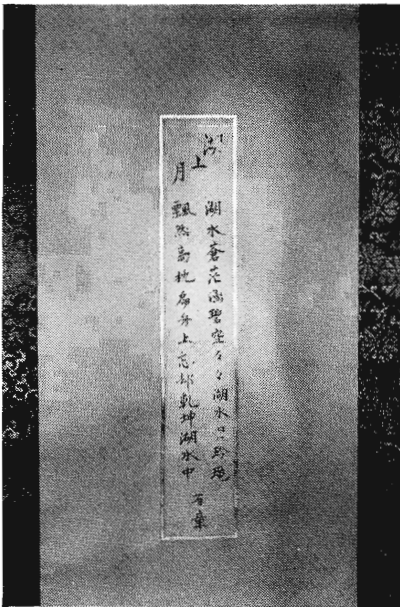 湖上月
湖水蒼茫涵碧空々々湖水只玲瓏
飄然高枕扁舟上忘却乾坤湖水中
石